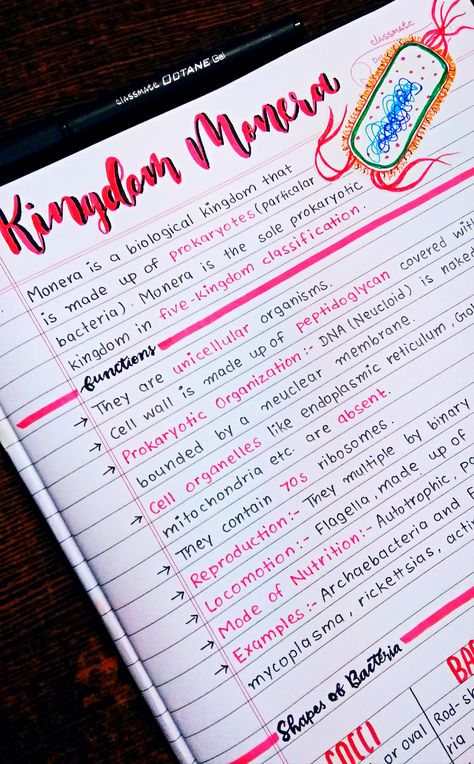 classmate OCTANE Gel
classmate
Kingdom Monera
Monera is a biological kingdom that
is made up of prokaryotes (particular
bacteria). Monera is the sole prokaryotic
kingdom in five-kingdom classification.
functions
→ They are unicellular organisms.
→ Cell wall is made up of peptidoglycan covered with
→ Prokaryotic Organization:- DNA (Neucloid) is naked
bounded by a neuclear membrane.
→ Cell organelles like endoplasmic reticulum, Gol
mitochondria etc. are absent.
→ They contain 70s ribosomes.
→ Reproduction:- They multiple by binary
→ Locomotion:- Flagella, made up of
→ Mode of Nutrition:- Autotrophic, Pa
→ Examples:- Archaebacteria and E
mycoplasma, rickettsias, acti
Shapes of Bacteria
COCCI
BA
or oval
Rod-sh
ria